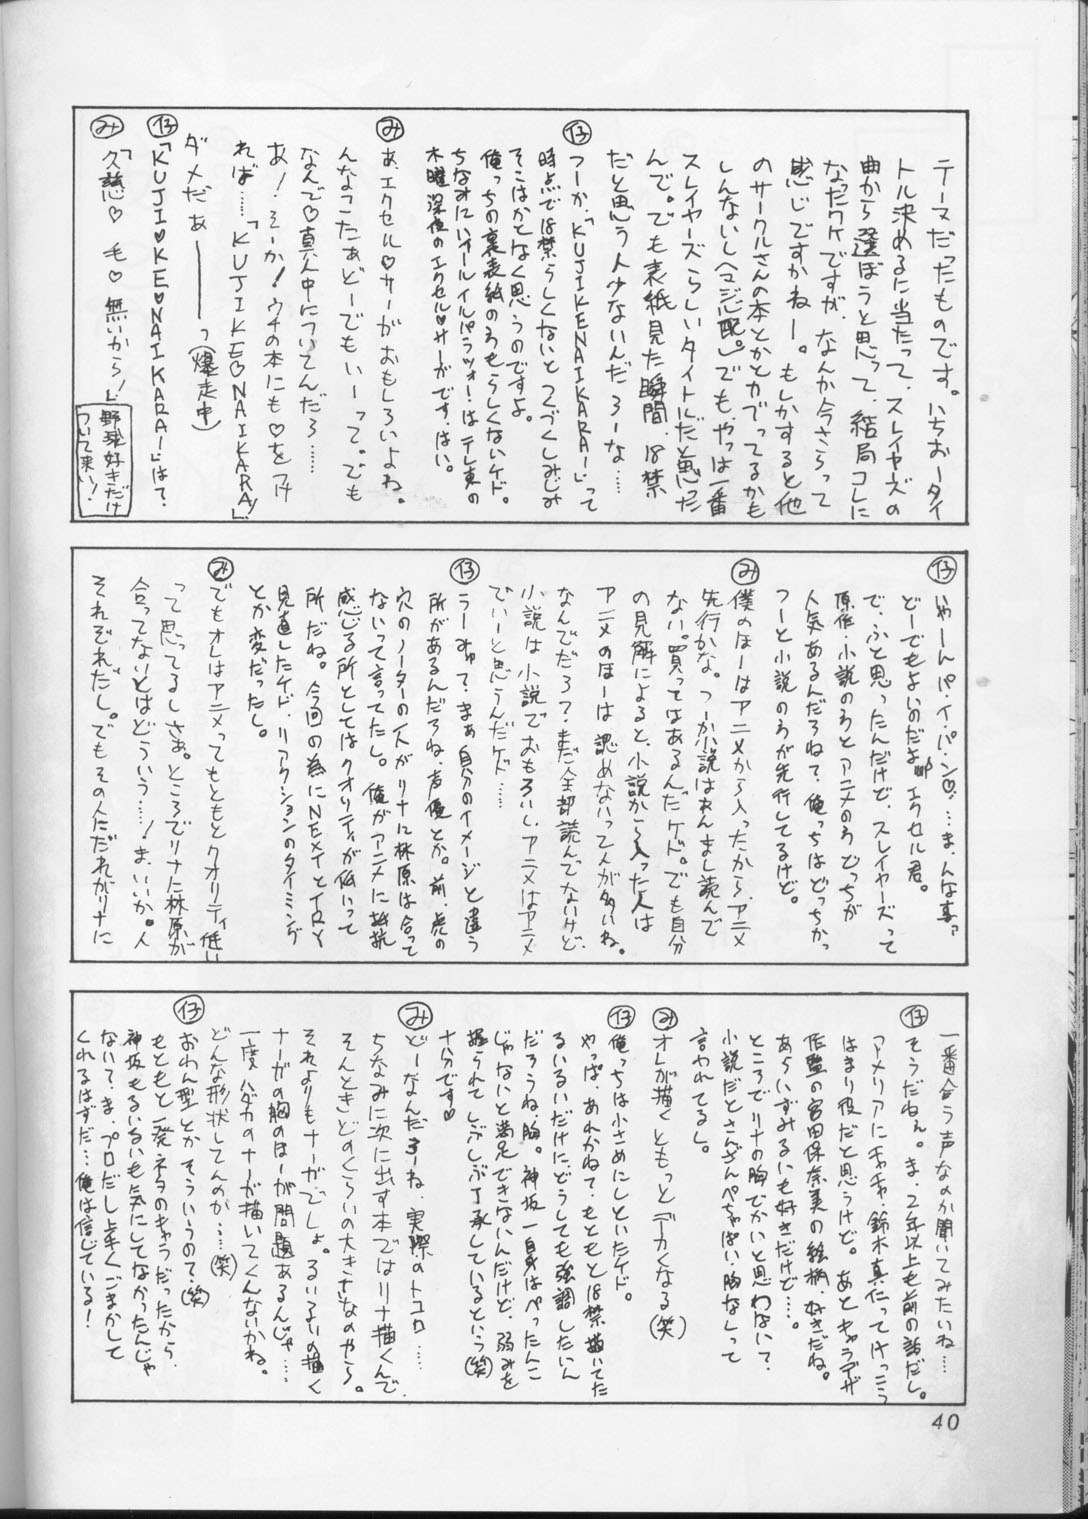 テーマだったものです。いちおータイ
トル決めるに当たって、スレイヤーズの
曲から選ぼうと思って、結局コレに
なったワケですが、なんか今さらって
感じですかねー。もしかすると他
のサークルさんの本とかとカブってるかも
しんないし(マジ心配。)でも、やっぱ一番
スレイヤーズらしいタイトルだと思った
んで。でも表紙見た瞬間、18禁
だと思う人少ないんだろーな……
仔 つーか、「KUJIKENAIKARA!」って
時点で18禁らしくないとつくづくしみじみ
そこはかとなく思うのですよ。
俺っちの裏表紙のろもらしくないケド。
ちなみにハイールイルパラッツォ!はテレ東の
木曜深夜のエクセル♡サーガです、はい。
み あ、エクセル♡サーガおもしろいよね。
んなこたぁどーでもいーって。でも
なんで♡真ん中についてんだろ……
あ!そーか!ウチの本にも♡をつけ
れば……「KUJIKE♡NAIKARA!」
ダメだぁ―――っ(爆走中)
仔 「KUJI♡KE♡NAIKARA!」は?
み 「久慈♡ 毛♡ 無いから!」
野球好きだけ
ついて来い!
仔 いやーん、パ・イ・パ・ン♡……ま、んな事ァ
どーでもよいのだよ エクセル君。
で、ふと思ったんだけど、スレイヤーズって
原作・小説のろとアニメのろどっちが
人気あるんだろね?俺っちはどっちかっ
つーと小説のろが先行してるけど。
み 僕のほーはアニメから入ったから、アニメ
先行かな。つーか小説はあんまし読んで
ない。買ってはあるんだケド。でも自分
の見解によると、小説から入った人は
アニメのほーは認めないって人が多いね。
なんでだろ?まだ全部読んでないけど、
小説は小説でおもろいし、アニメはアニメ
でいーと思うんだケド……
仔 うーみゅ?まぁ自分のイメージと違う
所があるんだろね、声優とか。前、虎の
穴のノーターの人がリナに林原は合って
ないって言ってたし。俺がアニメに抵抗
感じる所としてはクオリティが低いって
所だね。今回の為にNEXTとTRY
見直したケド、リアクションのタイミング
とか変だったし。
み でもオレはアニメってもともとクオリティ低い
って思ってるしさぁ。ところでリナに林原が
合ってないとはどういう……!ま、いいか。人
それぞれだし。でもその人だれがリナに
一番合う声なのか聞いてみたいね…
仔 そうだねぇ。ま、2年以上も前の話だし。
アメリアにキャキャ鈴木真仁ってけっこう
はまり役だと思うけど。あとキャラデザ
作監の宮田保奈美の絵柄、好きだね。
あらいずみるいも好きだけど…。
ところでリナの胸でかいと思わない?
小説だとさんざんぺちゃぱい、胸なしって
言われてるし。
み オレが描くともっとデーカくなる(笑)
仔 俺っちは小さめにしといたケド。
やっぱ、あれかね?もともと18禁描いてた
るいるいだけに、どうしても強調したいん
だろうね、胸。神坂一自身はぺったんこ
じゃないと満足できないんだけど、弱みを
握られてしぶしぶ了承しているという(笑)
十分です♡
み どーなんだろーね、実際のトコロ……
ちなみに次に出す本ではリナ描くんで、
そんときどのくらいの大きさなのやら。
それよりもナーガでしょ。るいるいの描く
ナーガの胸のほーが問題あるんじゃ……
一度ハダカのナーガ描いてくんないかね。
どんな形状してんのか……(笑)
仔 おわん型とかそういうの?(笑)
もともと一発ネタのキャラだったから、
神坂もるいるいも気にしてなかったんじゃ
ない?ま、プロだし上手くごまかして
くれるはずだ…俺は信じている!
40